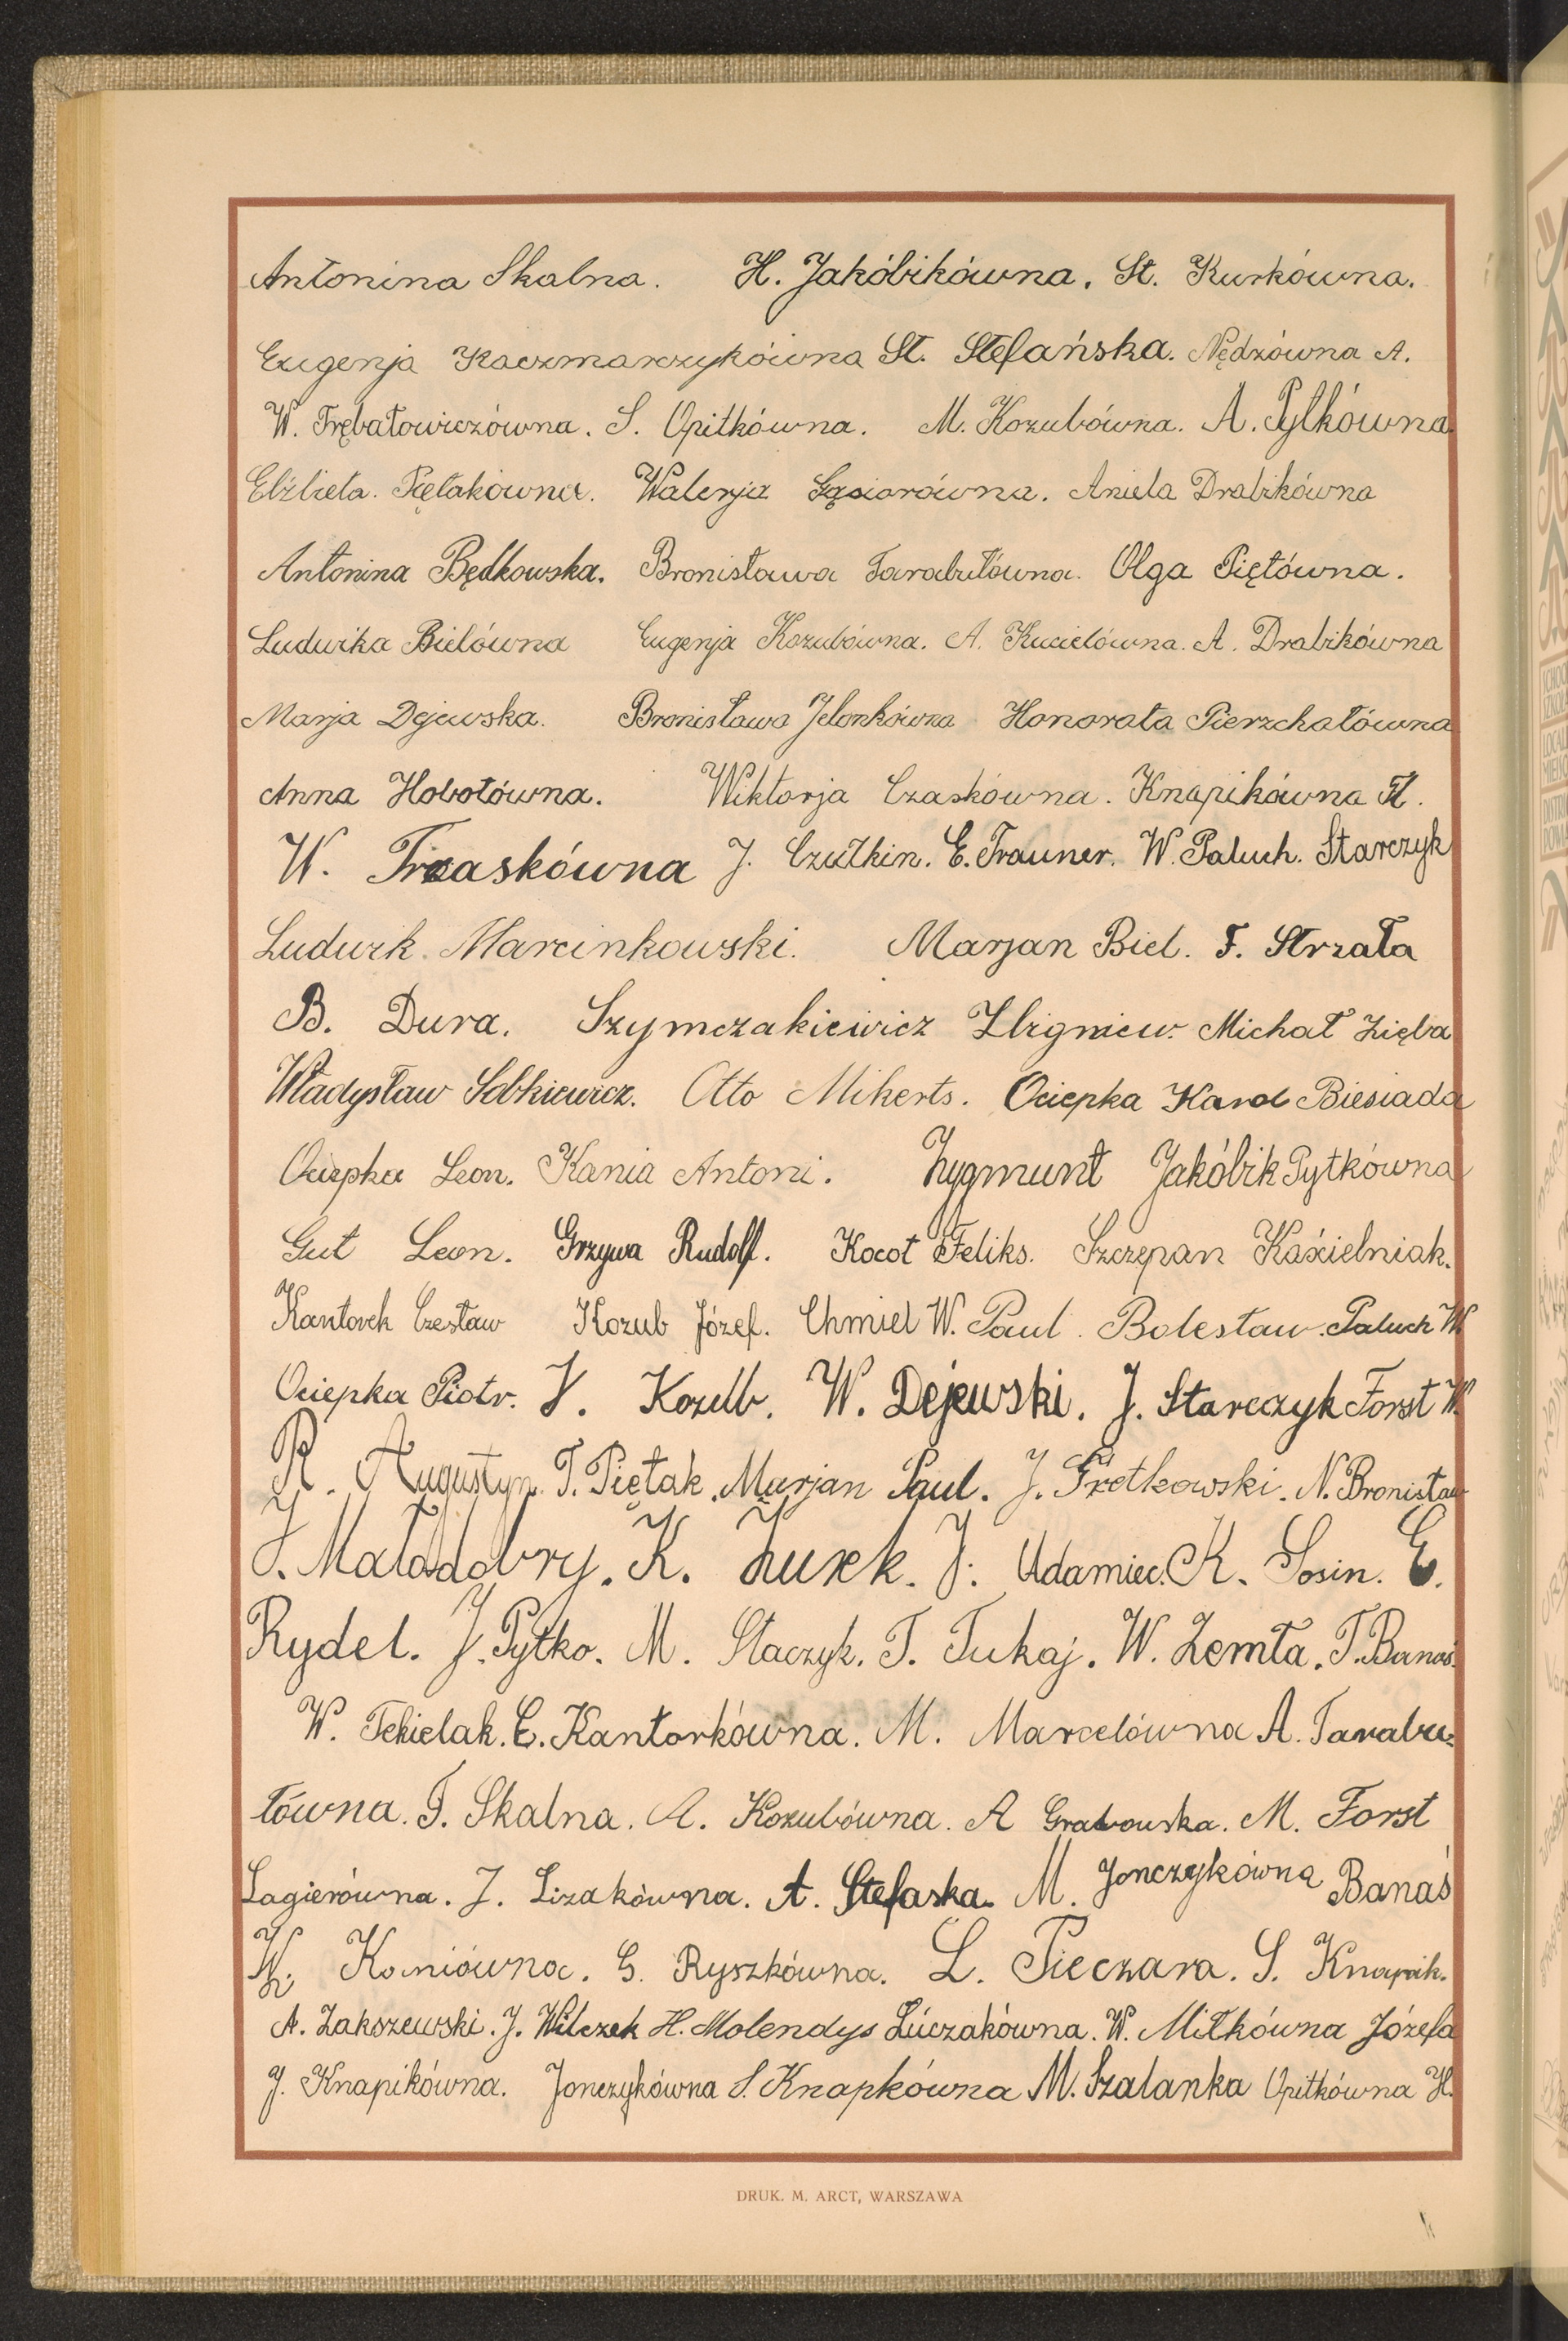 Antonina Skalna. H. Jakóbikówna. St. Kurkówna.
Eugenja Kaczmarczykówna St. Stefańska. Nędzówna A.
W. Trębatowiczówna. S. Opitkówna. M. Kozubówna. A. Pytkówna.
Elżbieta. Piętakówna. Walerja Gąsiorówna. Aniela Drabikówna
Antonina Będkowska. Bronisława Tarabułówna. Olga Piętówna.
Ludwika Bielówna Eugenja Kozubówna. A. Kucielówna. A. Drabikówna
Marja Dejewska. Bronisława Jelonkówna Honorata Pierzchałówna
Anna Hobotówna. Wiktorja Czaskówna. Knapikówna H.
W. Trzaskówna J. Czutkin. E. Trauner. W. Paluch. Starczyk
Ludwik. Marcinkowski. Marjan Biel. F. Strzała
B. Dura. Szymczakiewicz Zbigniew. Michał Zięba
Władysław Sobkiewicz. Otto Mikerts. Ociepka Karol Biesiada
Ociepka Leon. Kania Antoni. Zygmunt Jakóbik Pytkówna
Gut Leon. Grzywa Rudolf. Kocot Feliks. Szczepan Kaścielniak.
Kantorek Czesław Kozub Józef. Chmiel W. Paul. Bolesław. Paluch W.
Ociepka Piotr. J. Kozub. W. Dejewski. J. Starczyk Forst W.
R. Augustyn. T. Piętak. Marjan Paul. J. Fretkowski. N. Bronisław
J. Maładobry. K. Żurek. J. Udamiec. K. Sosin. E.
Rydel. J. Pytko. M. Staczyk. T. Tukaj. W. Zemła. T. Banaś.
W. Tekielak. E. Kantorkówna. M. Marcelówna A. Tarabu-
łówna. F. Skalna. A. Kozubówna. A Grabowska. M. Forst
Lagierówna. J. Lizakówna. A. Stefaska. M. Jonczykówna Banaś
W. Koniówna. G. Ryszkówna. L. Pieczara. S. Knapik.
A. Zakszewski. J. Wilczek H. Molendys Łúczakówna. W. Miłkówna Józefa
J. Knapikówna. Jonczykówna S. Knapkówna M. Szalanka Opitkówna H.
DRUK. M. ARCT, WARSZAWA